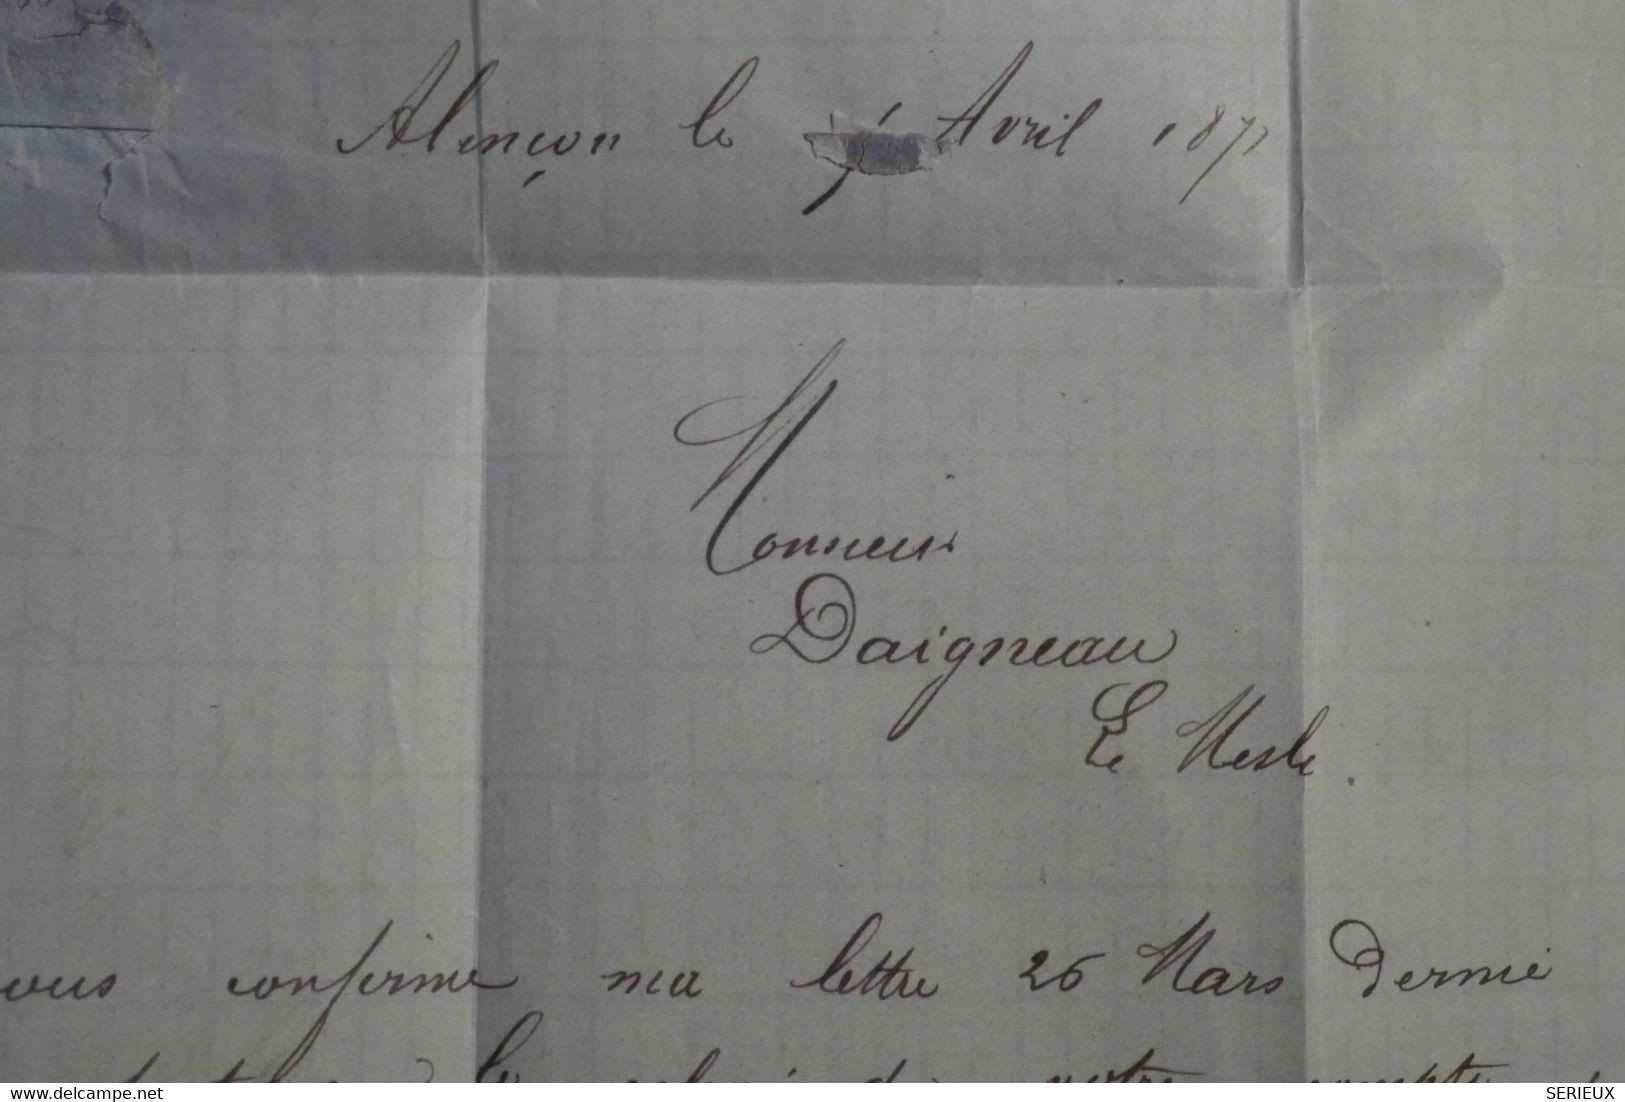 Alençon le Avril 1871
Monsieur
Daigneau
Le Mesle
ous confirme ma lettre 26 Mars dernie
votre compte
www.delcampe.net
SERIEUX